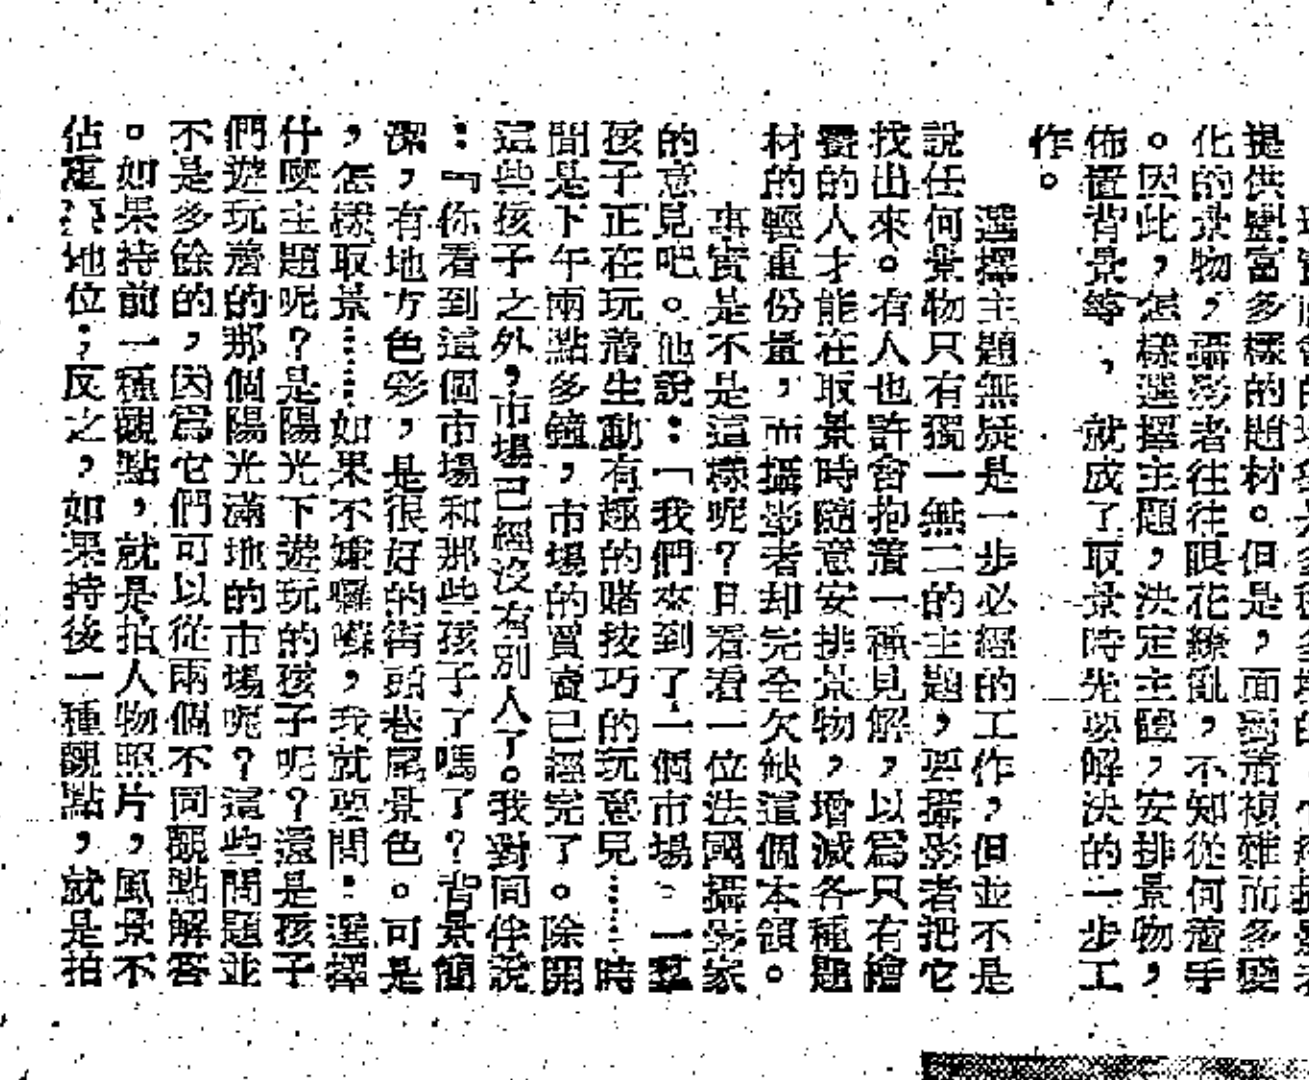 提供豐富多樣的題材。但是，面對着複雜而多變
化的景物，攝影者往往眼花繚亂，不知從何着手
。因此，怎樣選擇主題，決定主體，安排景物，
佈置背景等，就成了取景時先要解決的一步工
作。
選擇主題無疑是一步必經的工作，但並不是
說任何景物只有獨一無二的主題，要攝影者把它
找出來。有人也許會抱着一種見解，以爲只有繪
畫的人才能在取景時隨意安排景物，增減各種題
材的輕重份量，而攝影者却完全欠缺這個本領。
事實是不是這樣呢？且看看一位法國攝影家
的意見吧。他說：「我們來到了一個市場。一羣
孩子正在玩着生動有趣的賭技巧的玩意兒……時
間是下午兩點多鐘，市場的買賣已經完了。除開
這些孩子之外，市場已經沒有別人了。我對同伴說
：『你看到這個市場和那些孩子了嗎了？背景簡
潔，有地方色彩，是很好的街頭巷尾景色。可是
，怎樣取景……如果不嫌囉嗦，我就要問：選擇
什麼主題呢？是陽光下遊玩的孩子呢？還是孩子
們遊玩着的那個陽光滿地的市場呢？這些問題並
不是多餘的，因爲它們可以從兩個不同觀點解答
。如果持前一種觀點，就是拍人物照片，風景不
佔重要地位；反之，如果持後一種觀點，就是拍